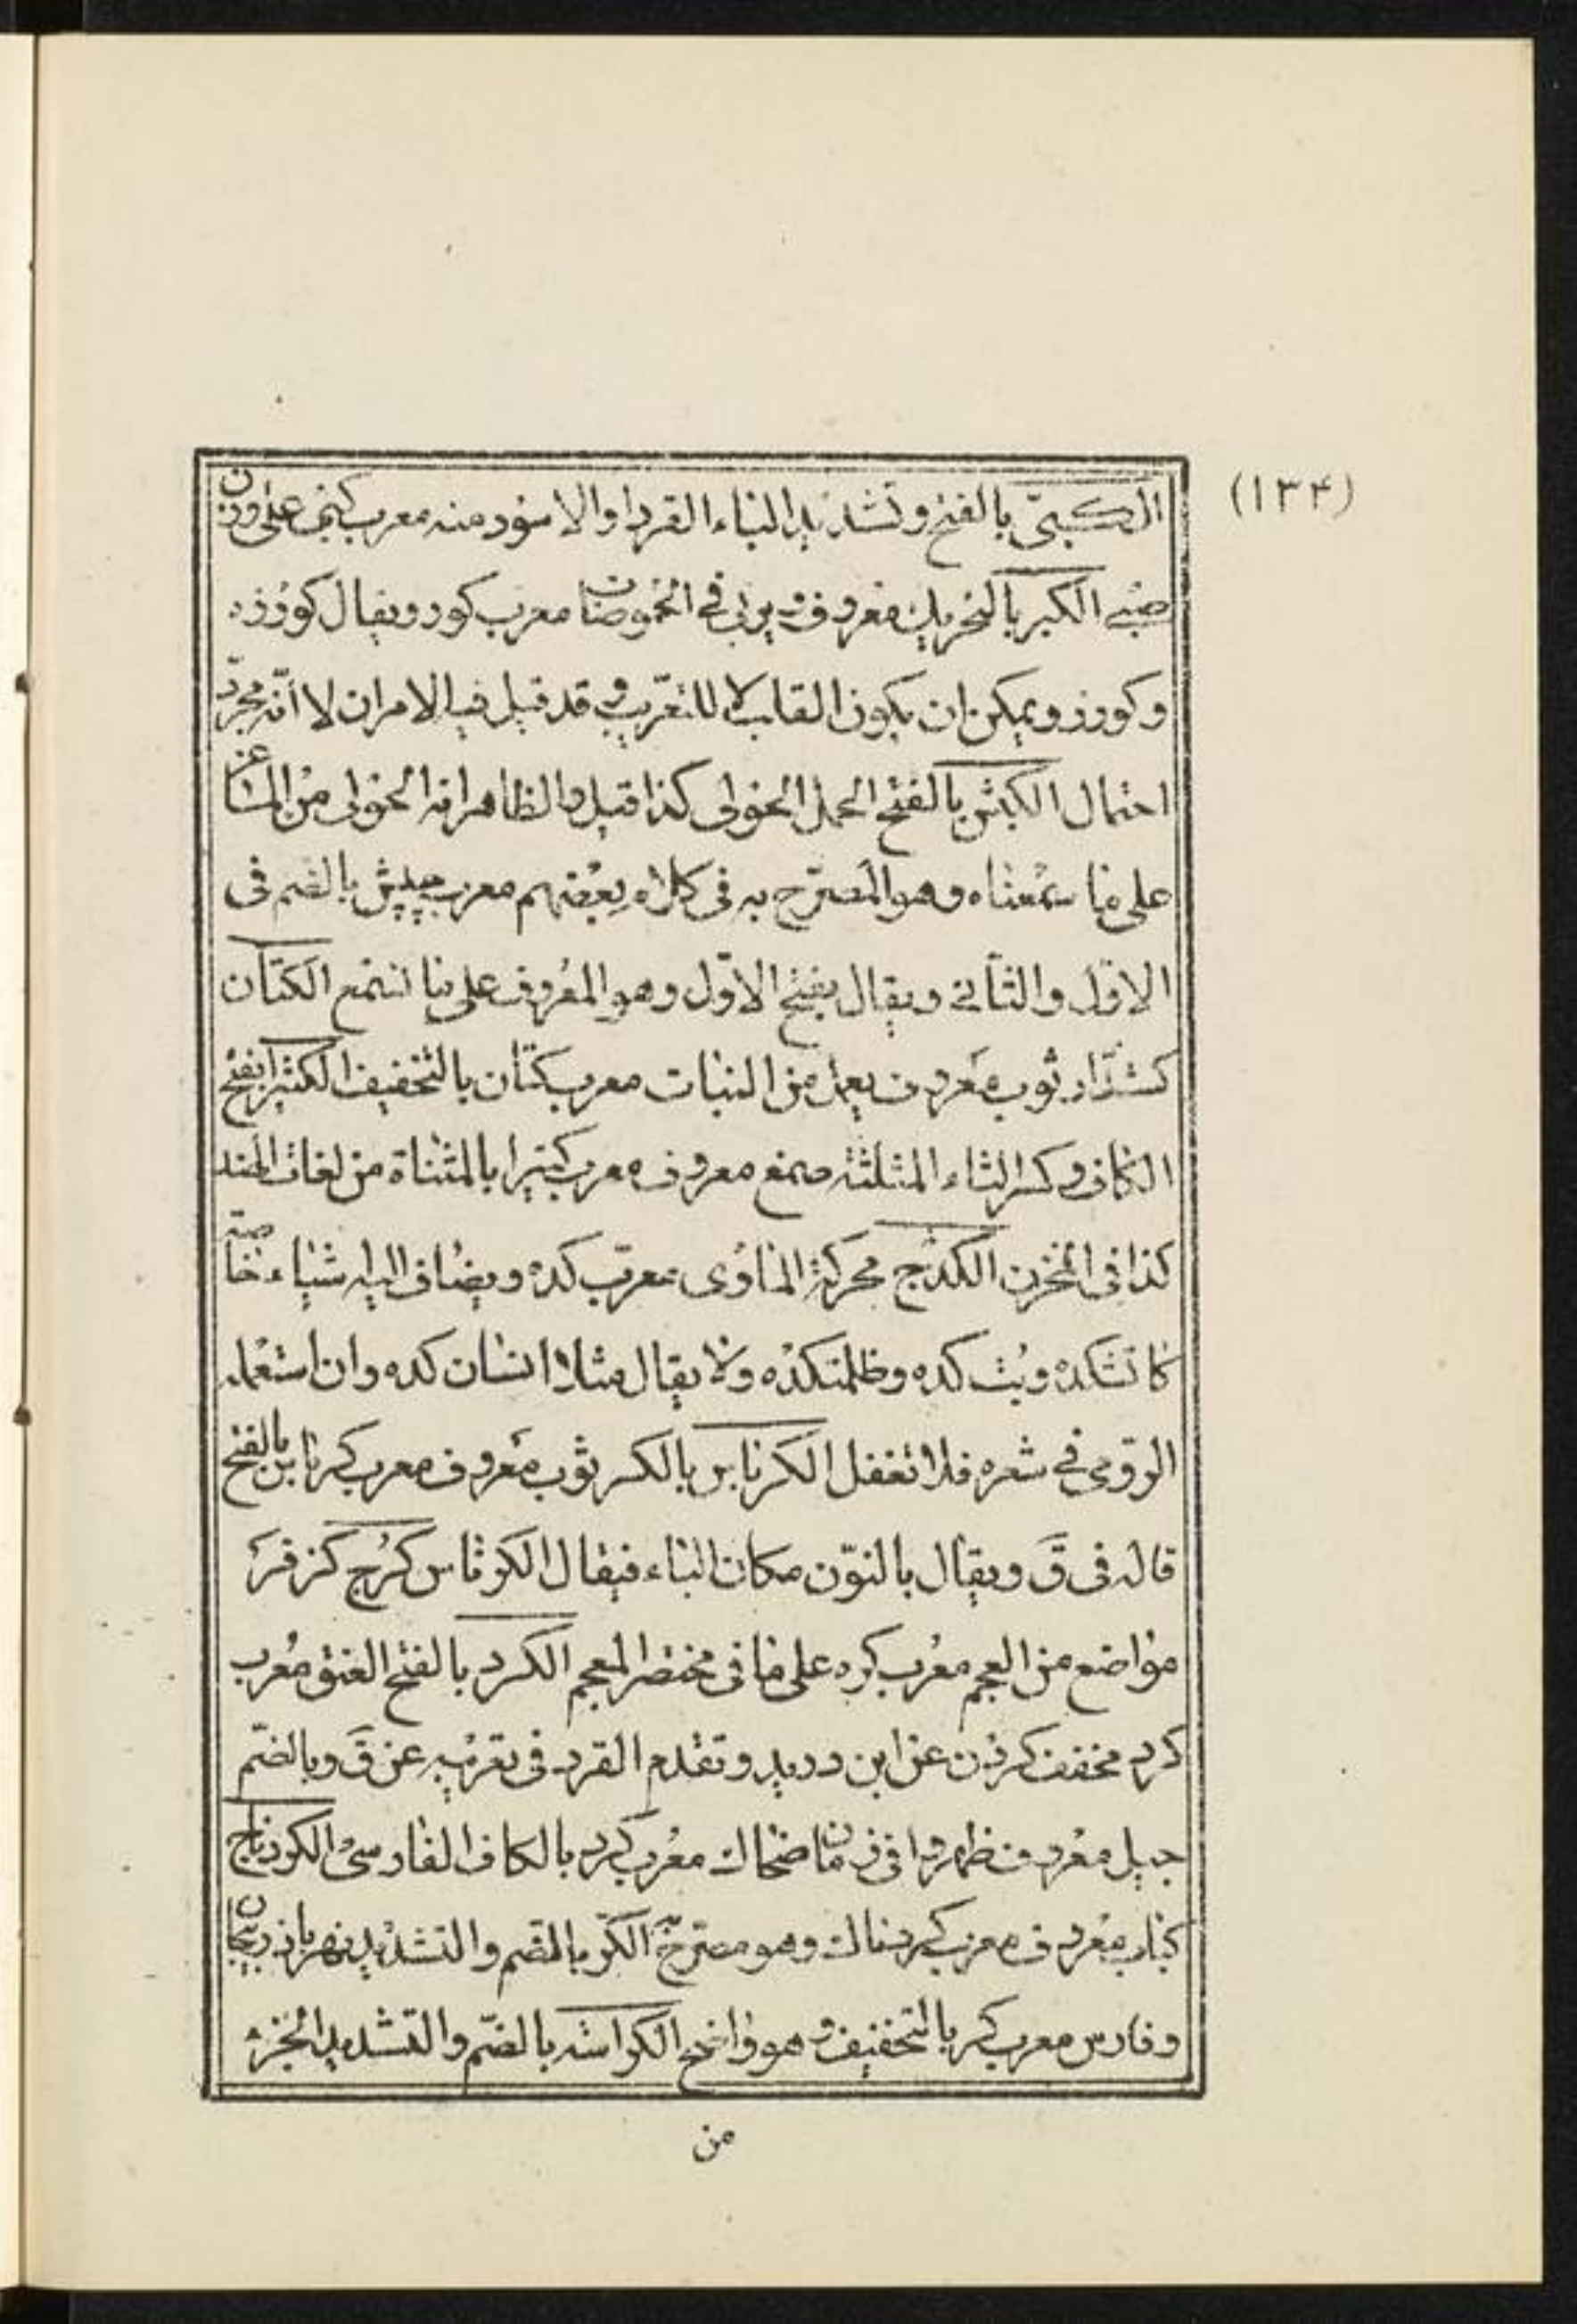 (١٣۴)
الكبىّ بالفتح وتشديد الباء القرد او الاسود منه معرب كپى على وزن
صبى الكبر بالتحريك معروف يربى فى الحموضات معرب كور ويقال كورزه
وكورز ويمكن ان يكون القلب لا للتعريب وقد قيل فيه الامران لا انّه مجرّد
احتمال الكبش بالفتح الحمل الحولى كذا قيل والظاهر انه الحولى من الماعز
على ما سمعناه وهو المصرّح به فى كلام بعضهم معرب چپش بالضم فى
الاوّل والثانى ويقال بفتح الاوّل وهو المعروف على ما نسمع الكتّان
كشدّاد ثوب معروف يعمل من النبات معرب كتان بالتخفيف الكثيرا بفتح
الكاف وكسر الثاء المثلثة صمغ معروف معرب كتيرا بالمثناة من لغات الهند
كذا فى المخزن الكدج محركة الماوى معرّب كده ويضاف اليه اشياء خاصّة
كاتشكده وبت كده وظلمتكده ولا يقال مثلا انسان كده وان استعمله
الرومى فى شعره فلا تغفل الكرباس بالكسر ثوب معروف معرب كرباس بالفتح
قاله فى ق ويقال بالنوّن مكان الباء فيقال الكرناس كرج كزفر
مواضع من العجم معرب كره على ما فى مختصر المعجم الكرد بالفتح العنق معرب
كرد مخفف كردن عن ابن دريد وتقدم القرد فى تعريبه عن ق وبالضّم
جيل معروف ظهروا فى زمان ضحاك معرب كرد بالكاف الفارسى الكردناج
كباب معروف معرب كردناك وهو مصرّح الكرّ بالضم والتشديد نهر باذربيجان
وفارس معرب كر بالتخفيف وهو واضح الكراسة بالضّم والتشديد الجزء
من